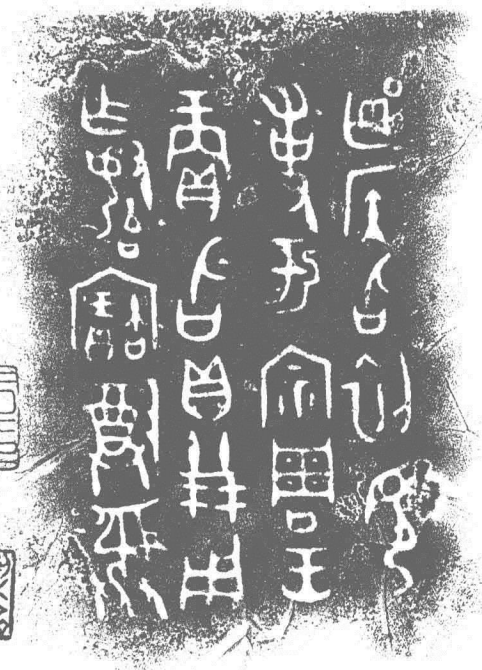 匽侯旨初見
事于宗周王
賞旨貝廿朋用
乍又始寶尊彝